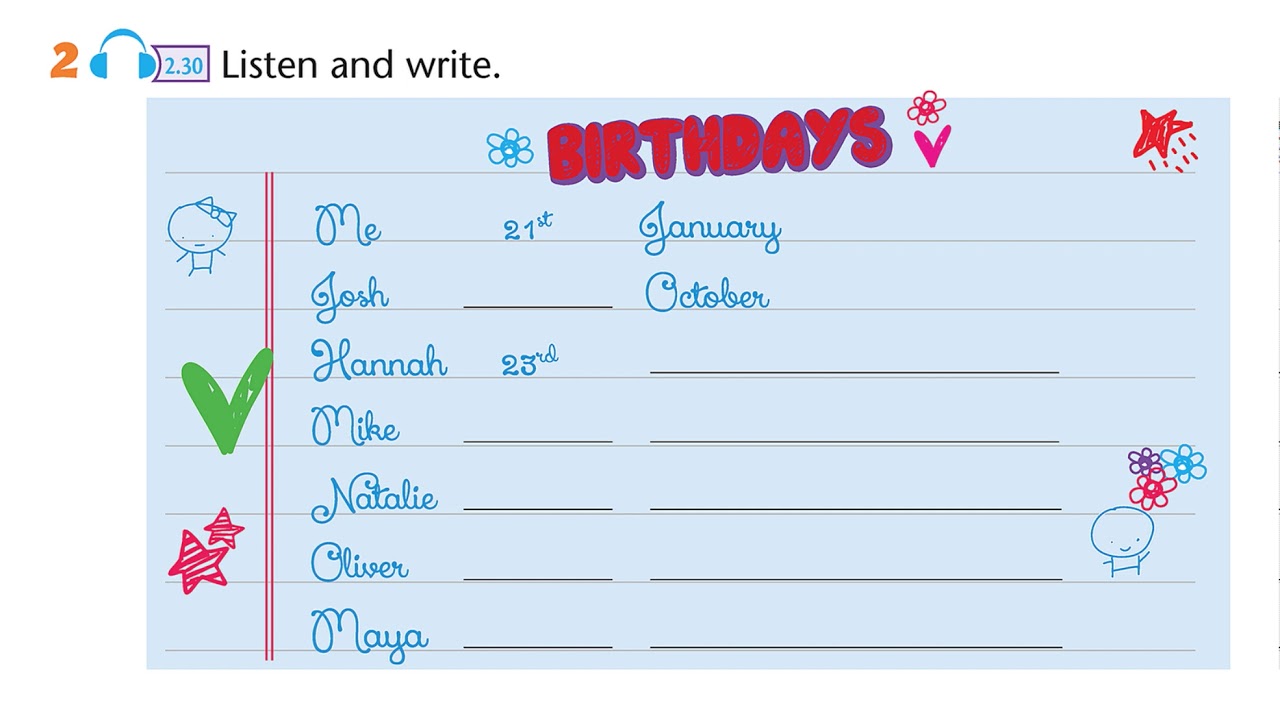 2 2.30 Listen and write.
BIRTHDAYS
Me 21st January
Josh October
Hannah 23rd
Mike
Natalie
Oliver
Maya